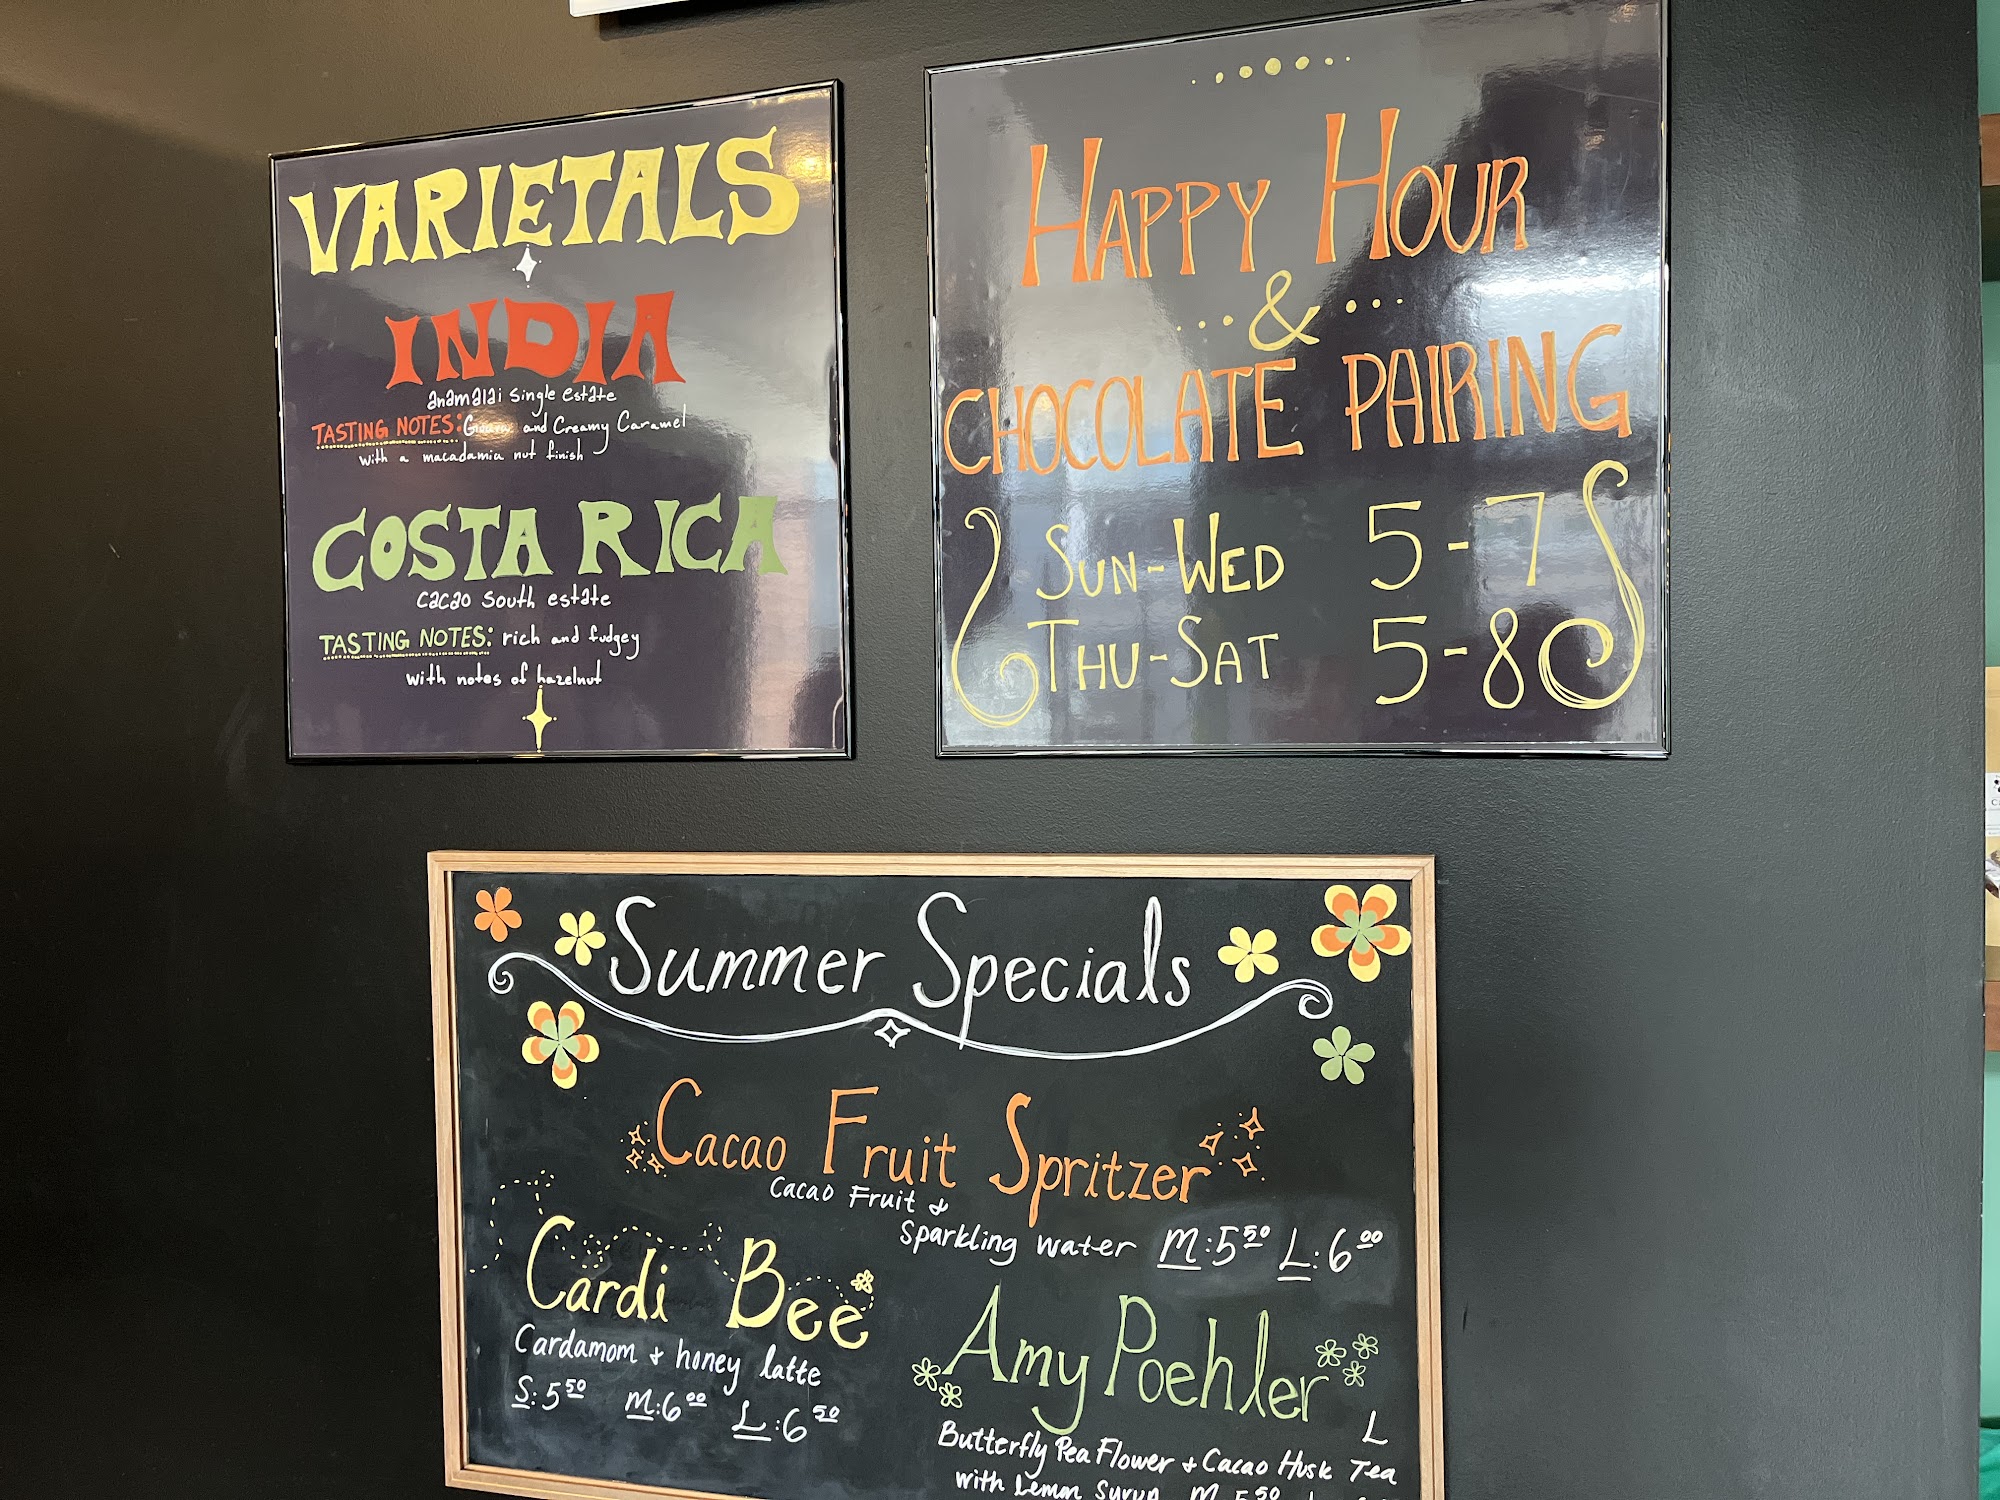 VARIETALS
INDIA
anamalai single estate
TASTING NOTES: and Creamy Caramel
with a macadamia nut finish
COSTA RICA
cacao south estate
TASTING NOTES: rich and fudgey
with notes of hazelnut
HAPPY HOUR
&
CHOCOLATE PAIRING
SUN-WED 5-7
THU-SAT 5-8
Summer Specials
Cacao Fruit Spritzer
Cacao Fruit &
Sparkling water M: 5 50 L: 6 00
Cardi Bee
Cardamom + honey latte
S: 5 50 M: 6 00 L: 6 50
Amy Poehler
L
Butterfly Pea Flower + Cacao Husk Tea
with Lemon Syrup M 5 50